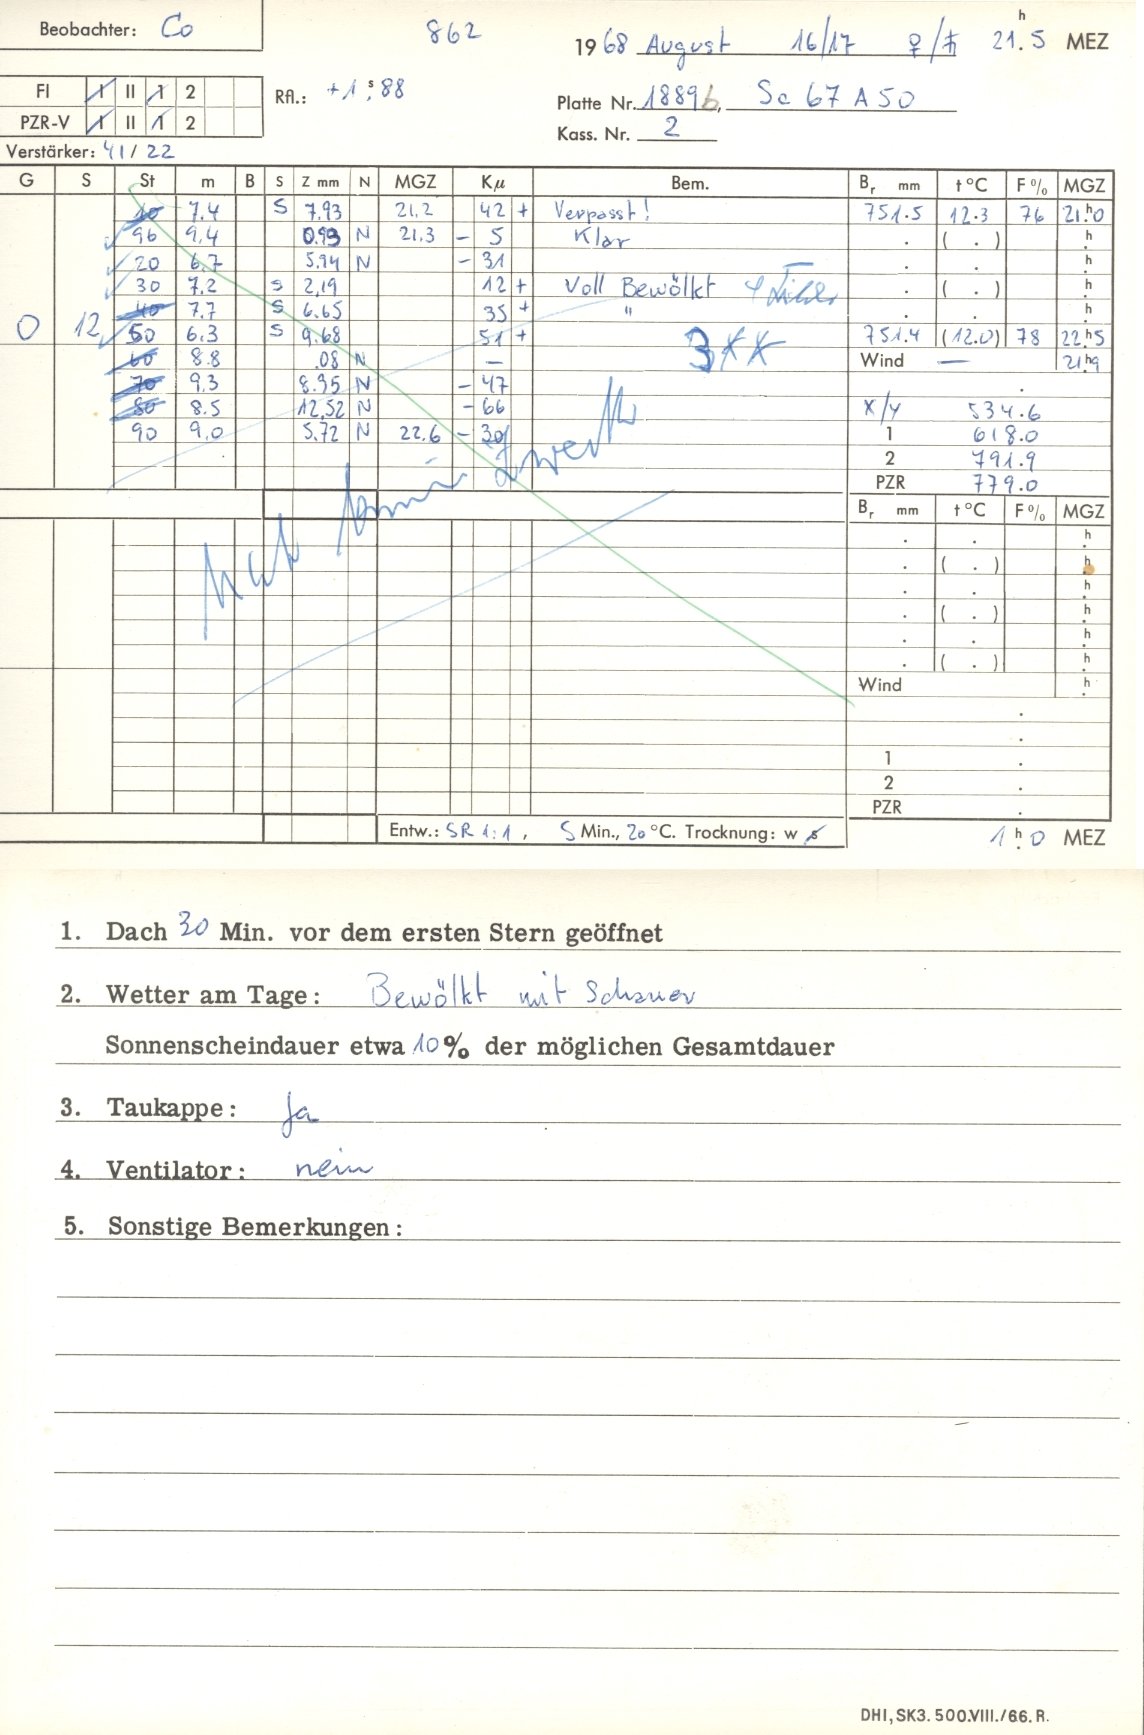 Beobachter: Co
862
1968 August 16/17 ♀/♄ 21h.5 MEZ
FI I II 1 2
Rfl.: +1s.88
Platte Nr. 1889b, Sc 67 A 50
PZR-V I II 1 2
Kass. Nr. 2
Verstärker: 41/22
G S St m B S Z mm N MGZ Kµ Bem. Br mm t °C F % MGZ
10 7.4 S 7.93 21.2 42 + Verpasst! 751.5 12.3 76 21h.0
96 9.4 0.93 N 21.3 - 5 Klar . ( . ) h.
20 6.7 5.94 N - 31 . . h.
30 7.2 S 2,19 12 + Voll Bewölkt . ( . ) h.
40 7.7 S 6.65 35 + " . . h.
0 12 50 6.3 S 9.68 51 + 751.4 (12.0) 78 22h.5
3**
60 8.8 .08 N — Wind — 21h.9
70 9.3 8.95 N - 47 .
80 8.5 12,52 N - 66 X/Y 534.6
90 9.0 5.72 N 22.6 - 30 1 618.0
2 791.9
PZR 779.0
Hat keinen Zweck
Br mm t °C F % MGZ
. . h.
. ( . ) h.
. . h.
. ( . ) h.
. . h.
. ( . ) h.
Wind h.
.
.
1 .
2 .
PZR .
Entw.: SR 1:1, 5 Min., 20 °C. Trocknung: w s
1h.0 MEZ
1. Dach 30 Min. vor dem ersten Stern geöffnet
2. Wetter am Tage: Bewölkt mit Schauer
Sonnenscheindauer etwa 10% der möglichen Gesamtdauer
3. Taukappe: Ja
4. Ventilator: nein
5. Sonstige Bemerkungen:
DHI, SK3. 500.VIII./66. R.